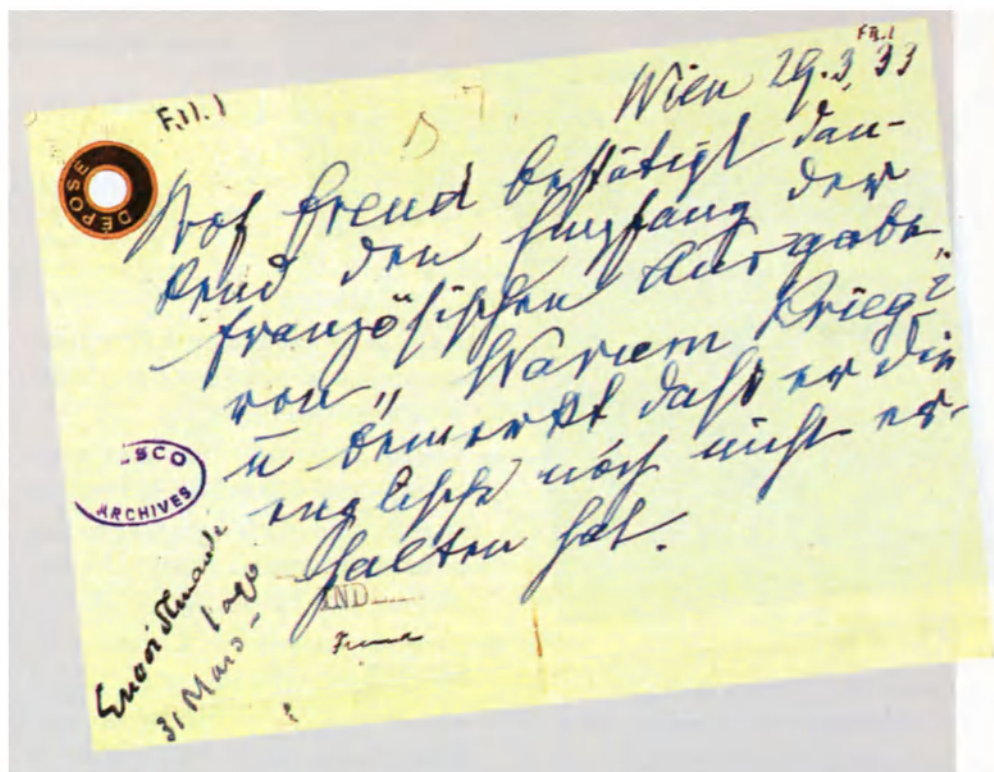 FR.1
F.11.1
Wien 29.3.33
DÉPOSE
Prof Freud bestätigt dan-
kend den Empfang der
französischen Ausgabe
von „Warum Krieg?"
u bemerkt daß er die
englische noch nicht er-
halten hat.
SCO
ARCHIVES
IND
Freud
Envoi demandé
31 Mars